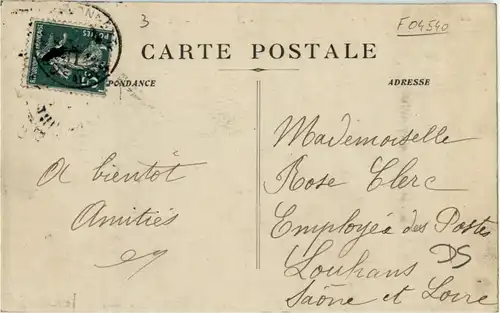 3
F 04540
CARTE POSTALE
PONDANCE
ADRESSE
A bientôt
Amitiés
Mademoiselle
Rose Clerc
Employée des Postes
Louhans
Saône et Loire